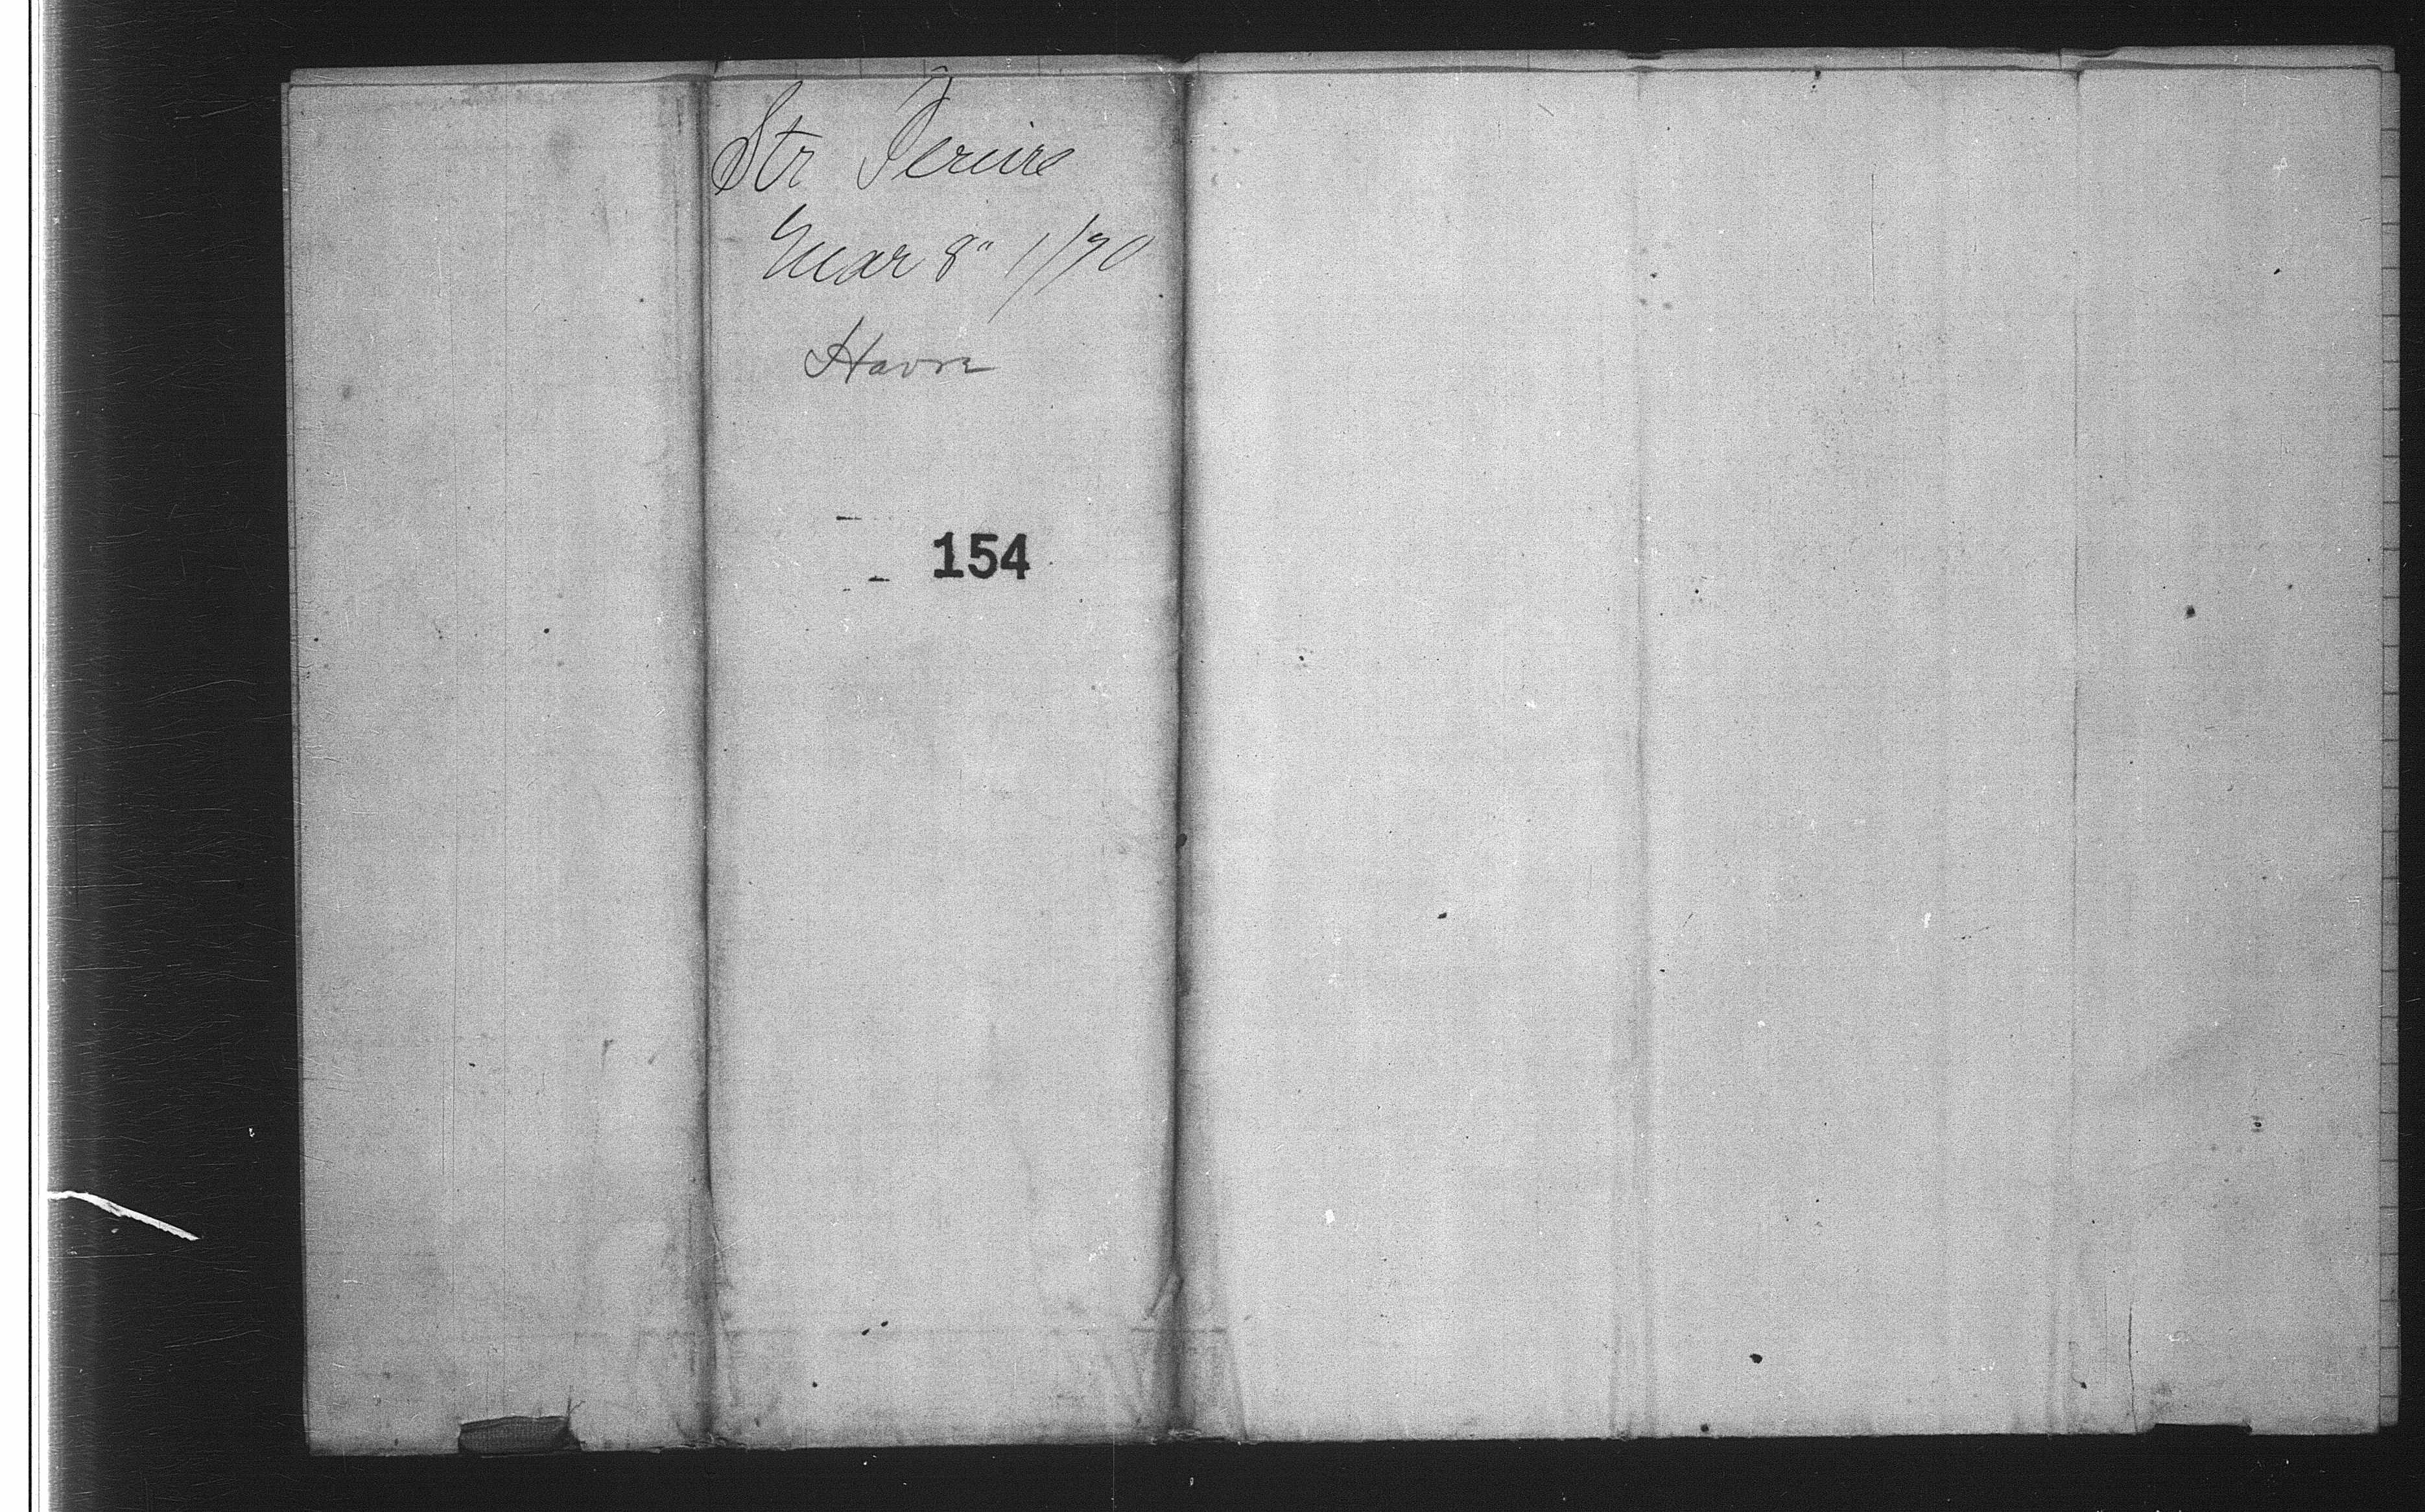 Str Pereire
Mar 8" 1/70
Havre
154